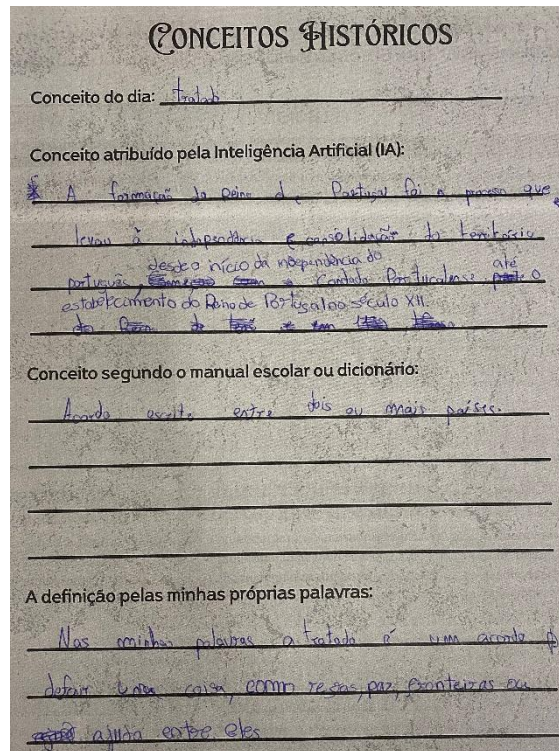 CONCEITOS HISTÓRICOS
Conceito do dia: tratado
Conceito atribuído pela Inteligência Artificial (IA):
A formação do Reino de Portugal foi o processo que
levou à independência e consolidação do território
desde o início da independência do
português, Condado Portucalense até o
estabelecimento do Reino de Portugal no século XII.
Conceito segundo o manual escolar ou dicionário:
Acordo escrito entre dois ou mais países.
A definição pelas minhas próprias palavras:
Nas minhas palavras o tratado é um acordo p
defenir uma coisa, como regras, paz, fronteiras ou
ajuda entre eles